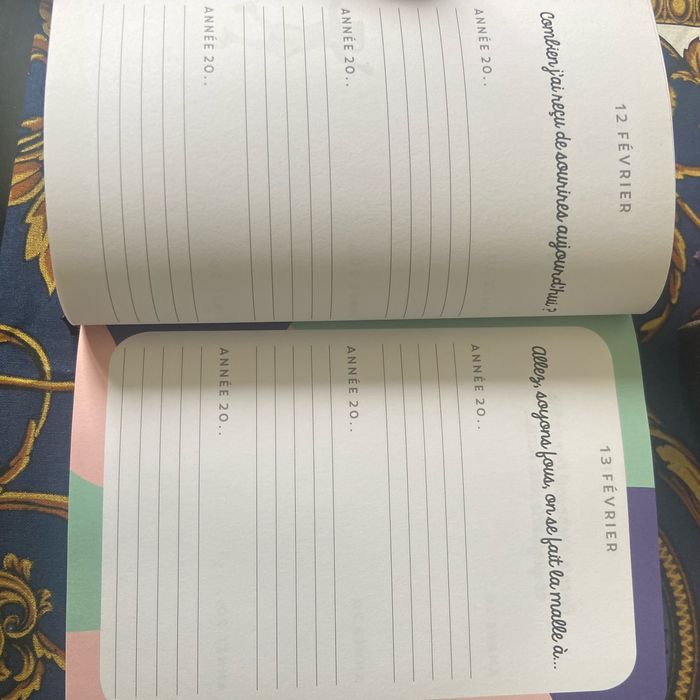 12 FÉVRIER
Combien j'ai reçu de sourires aujourd'hui ?
ANNÉE 20..
ANNÉE 20..
ANNÉE 20..
13 FÉVRIER
Allez, soyons fous, on se fait la malle à...
ANNÉE 20..
ANNÉE 20..
ANNÉE 20..